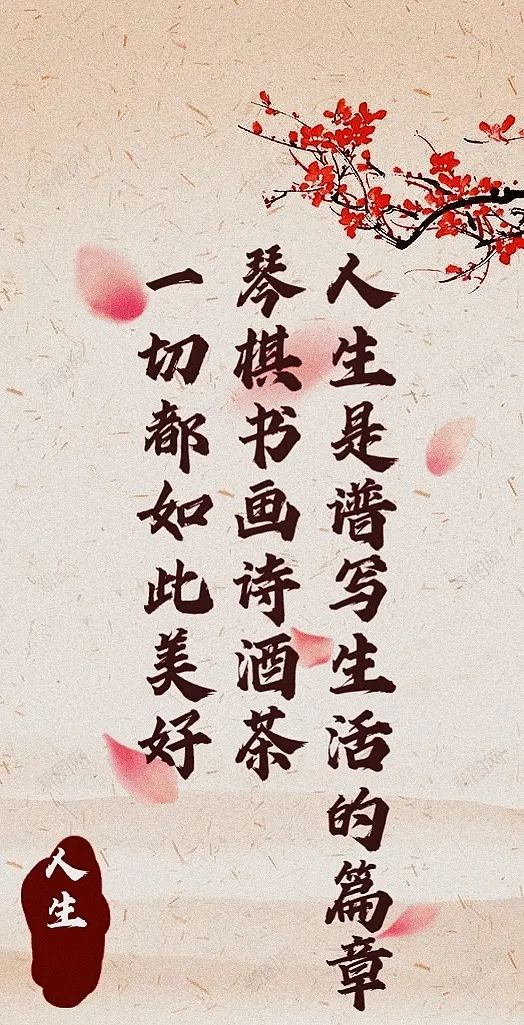 人生是谱写生活的篇章
琴棋书画诗酒茶
一切都如此美好
人生